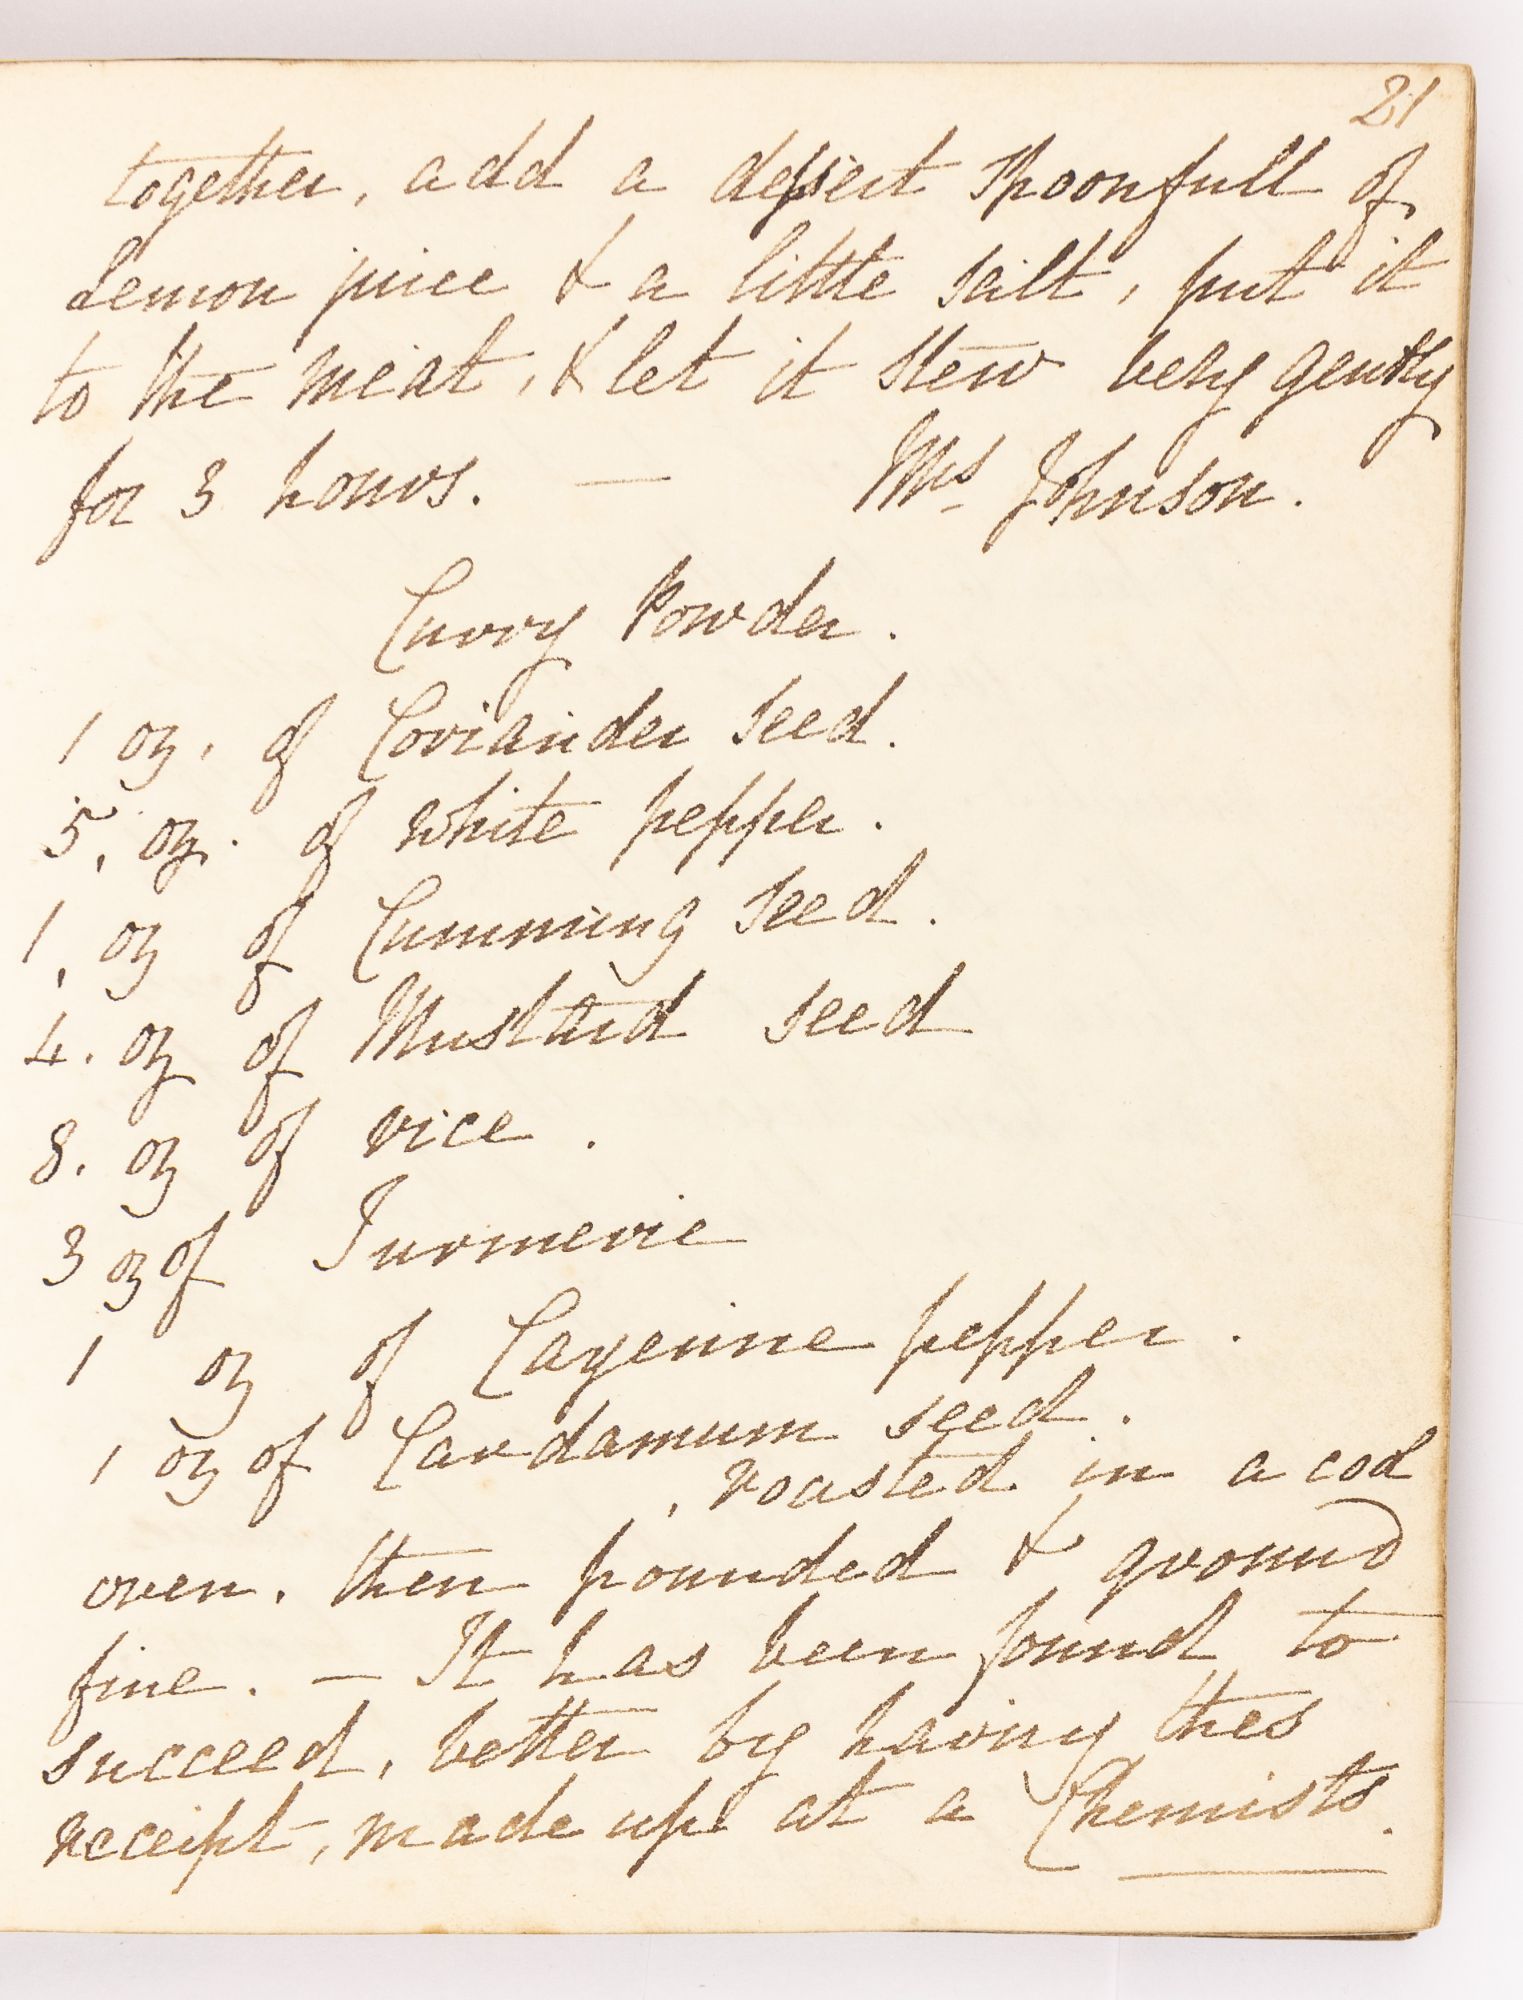 21
together, add a dessert spoonfull of
Lemon juice & a little salt, put it
to the meat, & let it stew very gently
for 3 hours. — Mrs Johnson.
Curry Powder.
1 oz. of Coriander seed.
5, oz. of white pepper.
1, oz of Cumming seed.
4. oz of Mustard seed
8. oz of rice.
3 oz of Turmeric
1 oz of Cayenne pepper.
1 oz of Cardamum seed.
, roasted in a cool
oven, then pounded & ground
fine. — It has been found to
succeed, better by having thes
receipt, made up at a Chemists.